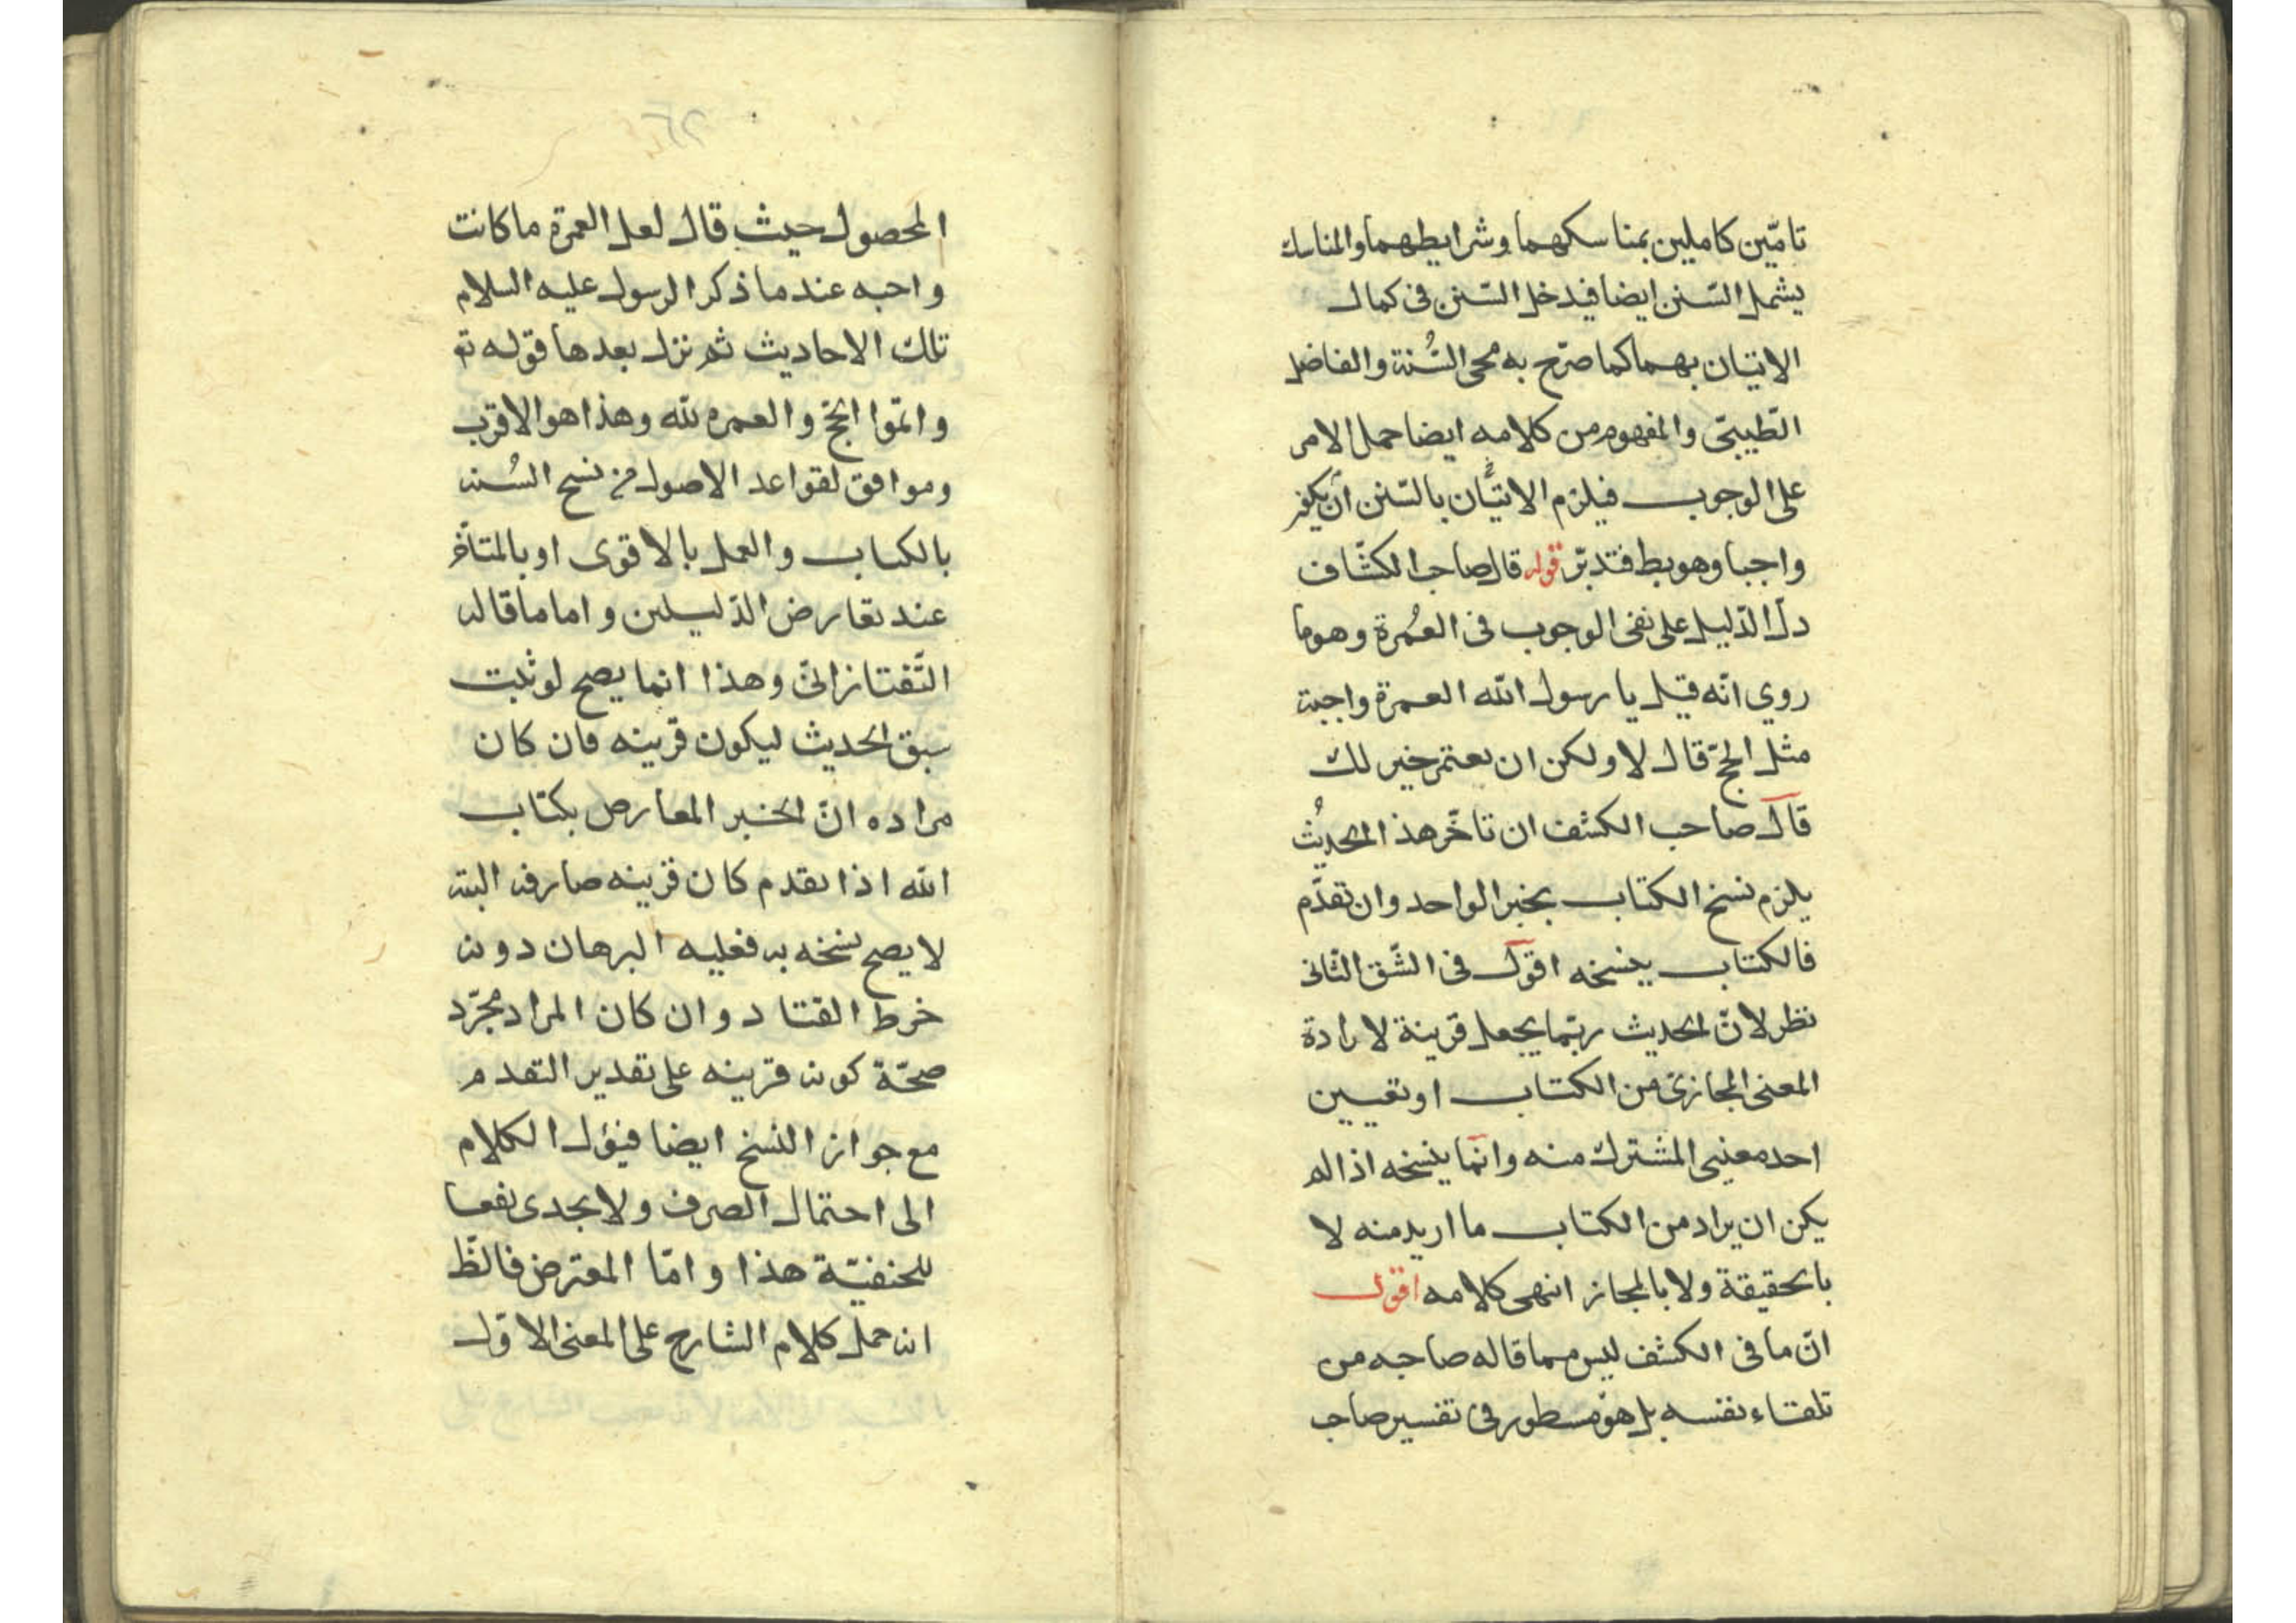 تامّين كاملين بمناسكهما وشرايطهما والمناسك
يشمل السّنن ايضا فيدخل السّنن فى كمال
الاتيان بهما كما صرّح به محى السُّنة والفاضل
الطّيبىّ والمفهوم من كلامه ايضا حمل الامر
على الوجوب فيلزم الاتيان بالسّنن أن يكون
واجبا وهو بط فتدبّر قوله قال صاحب الكشّاف
دلّ الدّليل على نفى الوجوب فى العُمرة وهو ما
روي انّه قيل يا رسول الله العمرة واجبة
مثل الحجّ قال لا ولكن ان يعتمر خير لك
قال صاحب الكشف ان تاخّر هذا الحديثُ
يلزم نسخ الكتاب بخبر الواحد وان تقدّم
فالكتاب ينسخه اقول فى الشّق الثّانى
نظر لانّ الحديث ربّما يجعل قرينة لارادة
المعنى المجازىّ من الكتاب او تعيين
احد معنيى المشترك منه وانّما ينسخه اذا لم
يكن ان يراد من الكتاب ما اريد منه لا
بالحقيقة ولا بالمجاز انتهى كلامه اقول
انّ ما فى الكشف ليس مما قاله صاحبه من
تلقاء نفسه بل هو مسطور فى تفسير صاحب
المحصول حيث قال لعل العمرة ما كانت
واجبه عند ما ذكر الرسول عليه السلام
تلك الاحاديث ثم نزل بعدها قوله تع
واتمّوا الحجّ والعمره لله وهذا هو الاقرب
وموافق لقواعد الاصول من نسخ السُنه
بالكتاب والعمل بالاقوى او بالمتاخّر
عند تعارض الدّليلين واما ما قاله
التّفتازانىّ وهذا انما يصح لو ثبت
سبق الحديث ليكون قرينه فان كان
مراده انّ الخبر المعارض بكتاب
الله اذا تقدم كان قرينه صارفه البته
لا يصح نسخه به فعليه البرهان دونه
خرط القتاد وان كان المراد مجرّد
صحّة كونه قرينه على تقدير التقدم
مع جواز النسخ ايضا فيؤل الكلام
الى احتمال الصرف ولا يجدى نفعا
للحنفيّة هذا وامّا المعترض فالظّ
انه حمل كلام الشارح على المعنى الاوّل